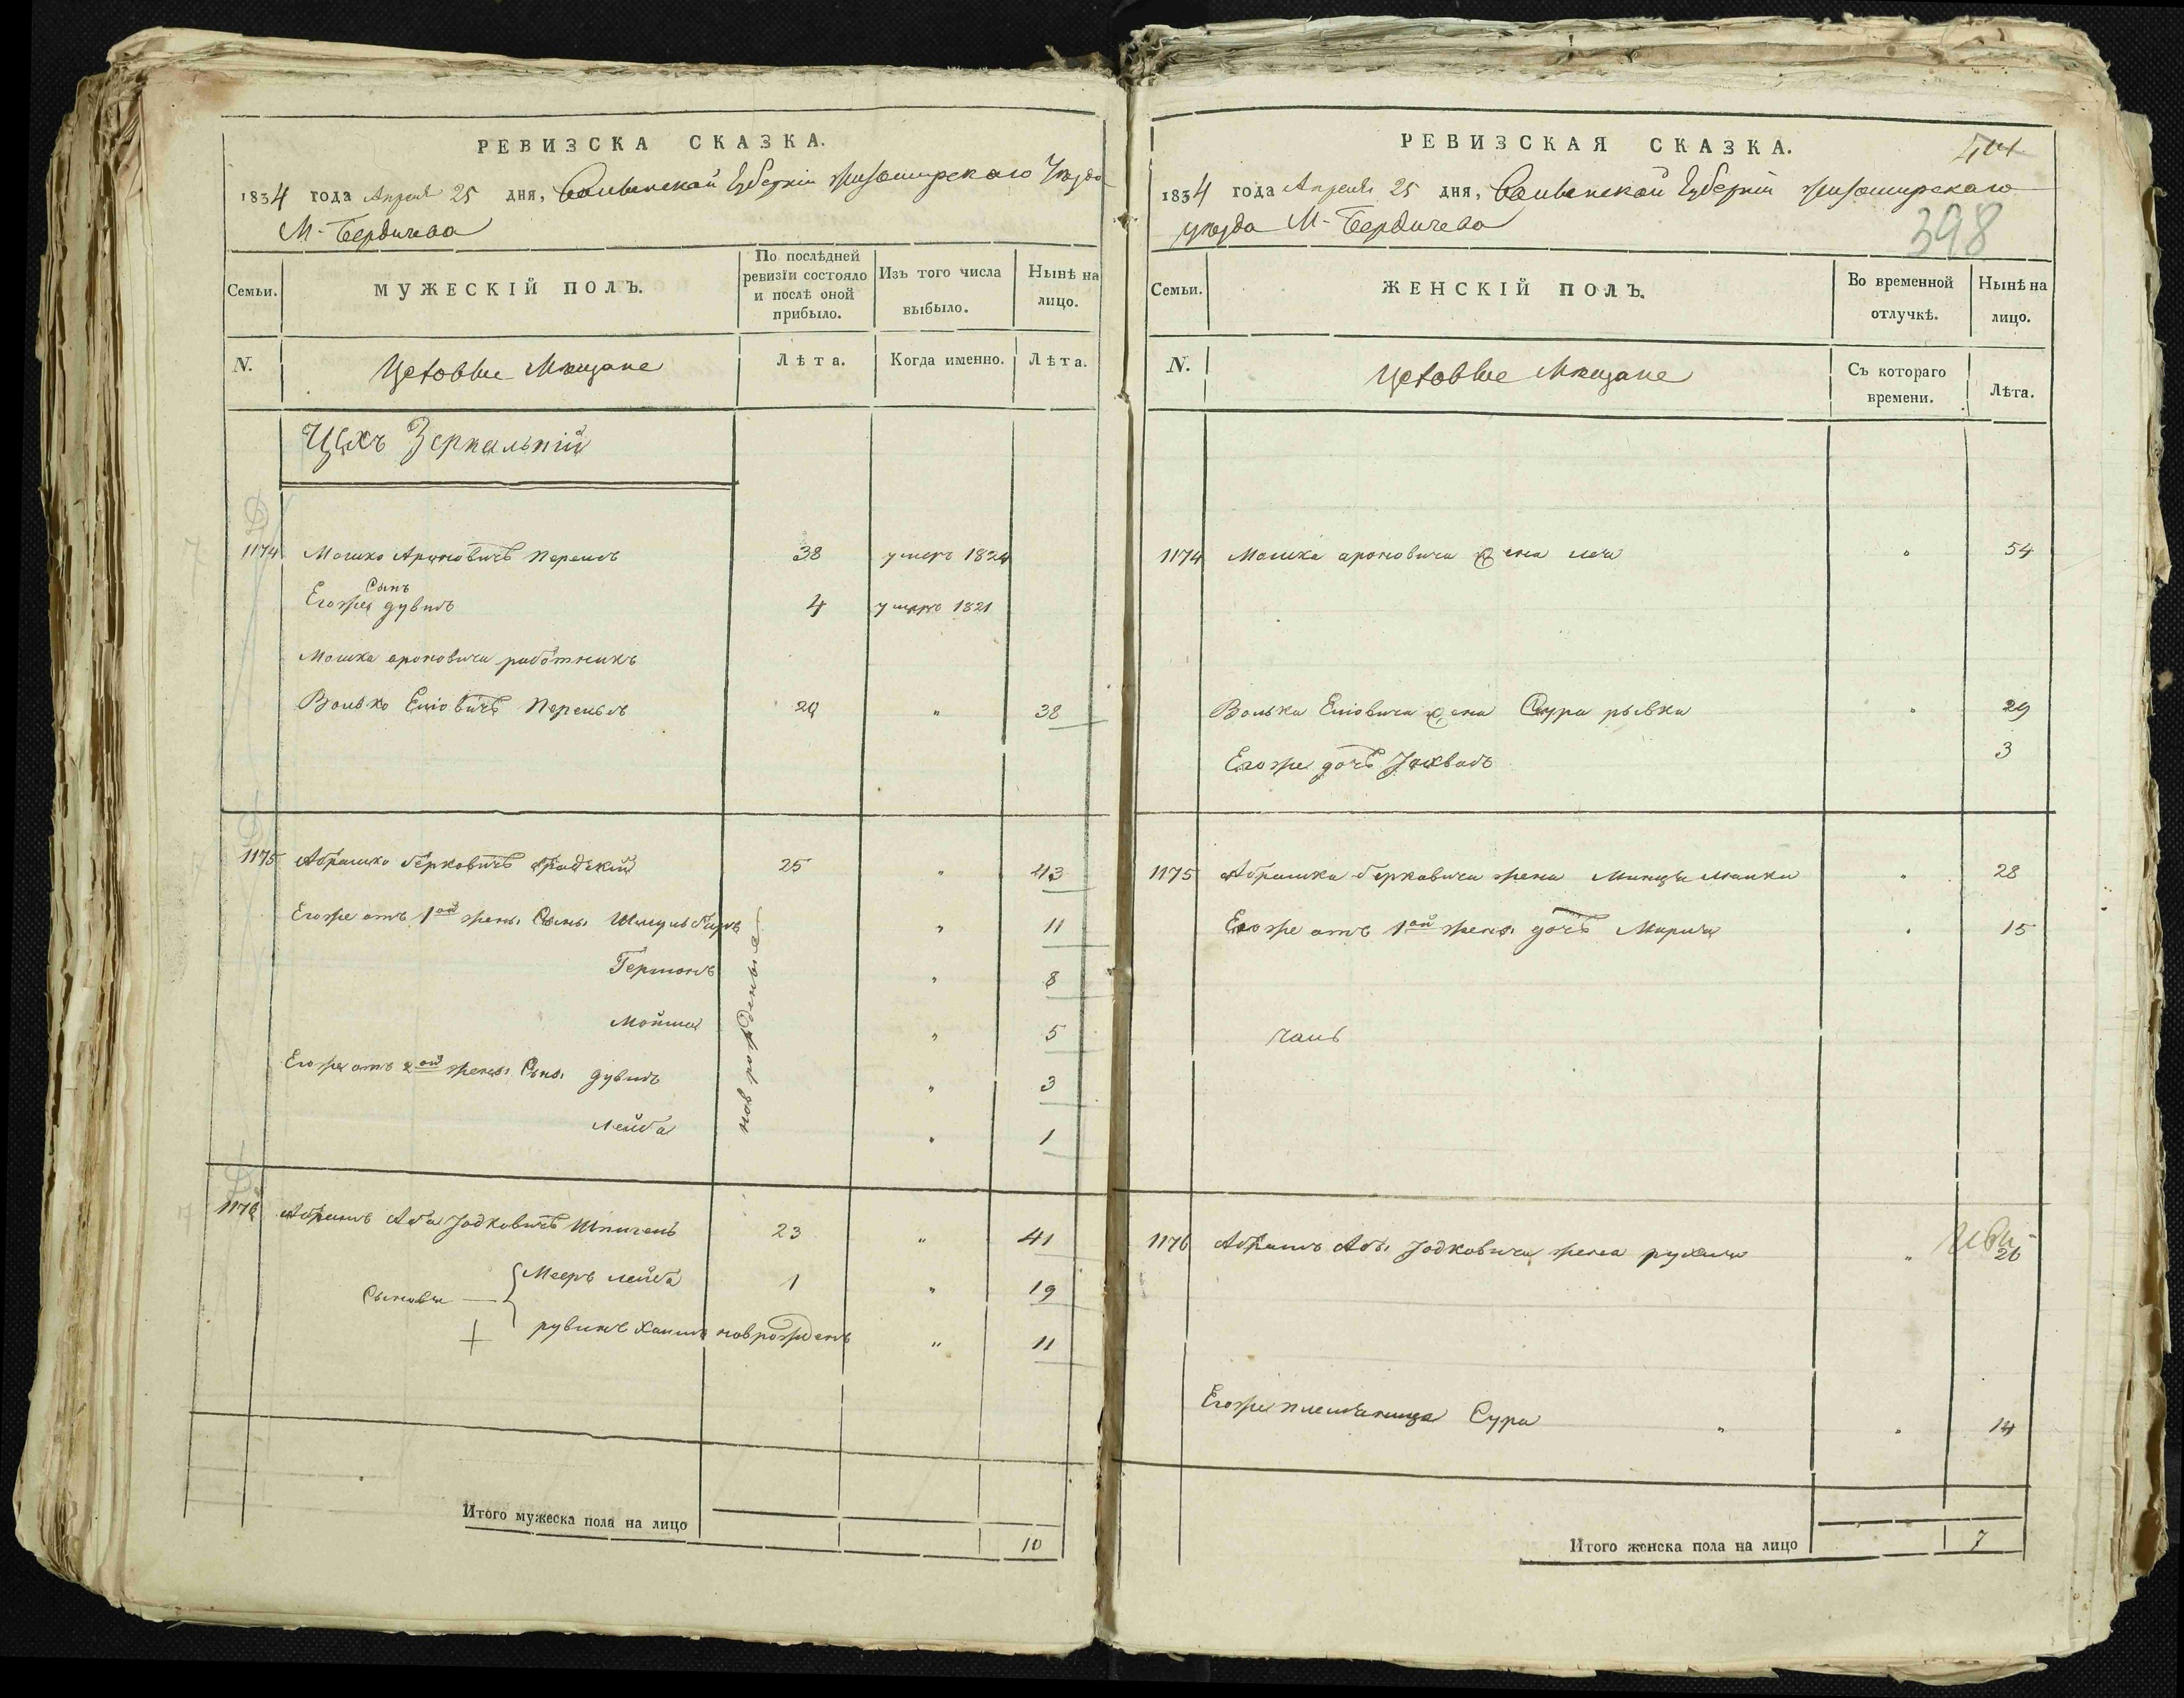 РЕВИЗСКА СКАЗКА.
1834 года Апреля 25 дня, Волынской Губерніи Житомирскаго Уезда
М. Бердичева
Семьи. МУЖЕСКІЙ ПОЛЪ. По послѣдней ревизіи состояло и послѣ оной прибыло. Изъ того числа выбыло. Нынѣ на лицо.
N. Цеховые Мещане Лѣта. Когда именно. Лѣта.
Цехъ Зеркальній
1174 Мошко Ароновичъ 38 умеръ 1824
Сынъ
Егоже дувидъ 4 умеръ 1821
Мошка ароновича работникъ
Волько 24 " 38
1175 Абрамко берковичъ 25 " 43
Егоже отъ 1ой жены Сыны " 11
Гершонъ " 8
Мойше " 5
Егоже отъ 2ой жены Сыны дувидъ " 3
Лейба " 1
новорожденые
1176 Абрамъ Аба Іодковичъ 23 " 41
Сыновья Мееръ лейба 1 " 19
рувинъ Хаимъ новрожденъ " 11
Итого мужеска пола на лицо 10
РЕВИЗСКАЯ СКАЗКА.
1834 года Апреля 25 дня, Волынской Губерніи Житомирскаго
уезда М. Бердичева
398
Семьи. ЖЕНСКІЙ ПОЛЪ. Во временной отлучкѣ. Нынѣ на лицо.
N. Цеховые Мещане Съ котораго времени. Лѣта.
1174 Мошка ароновича жена лея " 54
Волька жена Сура рывка " 29
Егоже дочь 3
1175 Абрамка берковича жена " 28
Егоже отъ 1ой жены дочь " 15
1176 Абрама Абы Іодковича жена рухля " 26
Егоже племяница Сура " " 14
Итого женска пола на лицо 7